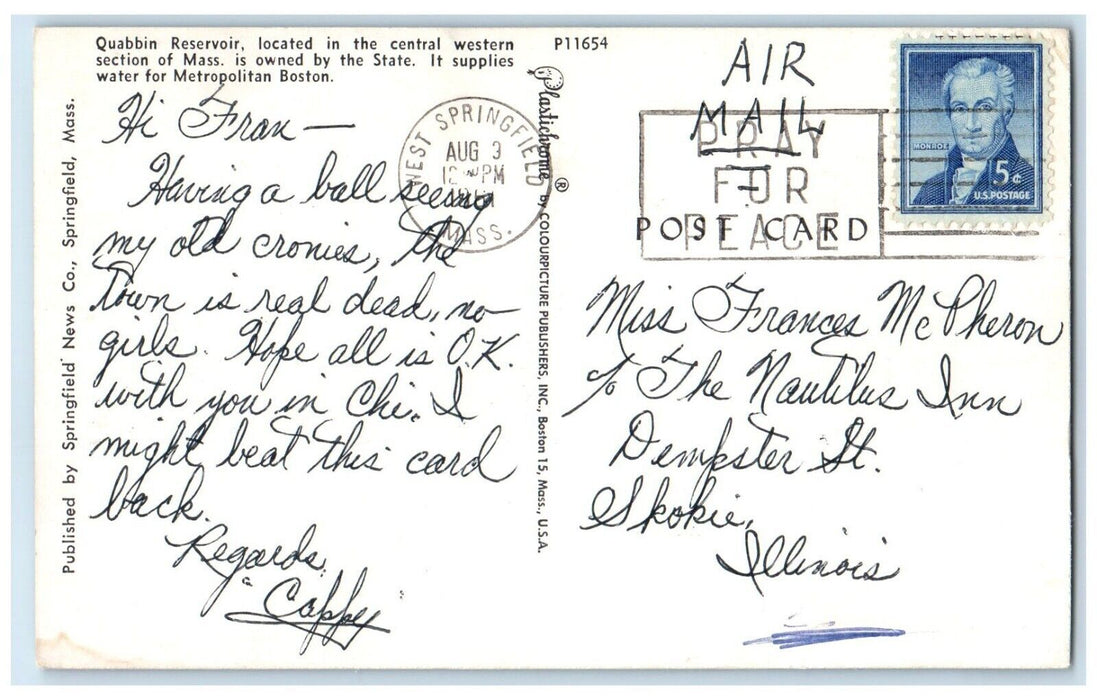 Quabbin Reservoir, located in the central western
section of Mass. is owned by the State. It supplies
water for Metropolitan Boston.
P11654
Hi Fran —
Having a ball seeing
my old cronies, the
town is real dead, no
girls. Hope all is O.K.
with you in Chi. I
might beat this card
back.
Regards,
"Cappy"
Published by Springfield News Co., Springfield, Mass.
Plastichrome ® by COLOURPICTURE PUBLISHERS, INC., Boston 15, Mass., U.S.A.
WEST SPRINGFIELD
AUG 3
PM
MASS.
AIR
MAIL
PRAY
FOR
PEACE
POST CARD
MONROE
5¢
U.S. POSTAGE
Miss Frances McPheron
c/o The Nautilus Inn
Dempster St.
Skokie,
Illinois